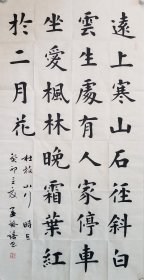 遠上寒山石徑斜白
雲生處有人家停車
坐愛楓林晚霜葉紅
於二月花
杜牧 山行 時在
癸卯之夏